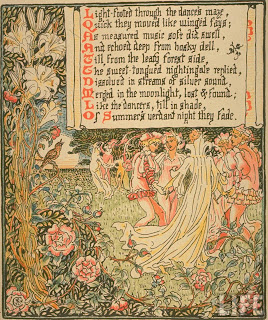 Light-footed through the dance's maze,
Quick they moved like winged fays;
As measured music soft did swell,
And echoed deep from bosky dell,
Till, from the leafy forest side,
The sweet-tongued nightingale replied,
Dissolved in streams of silver sound,
Merged in the moonlight, lost & found;
Like the dancers, till in shade,
Of Summer's verdant night they fade.
LIFE